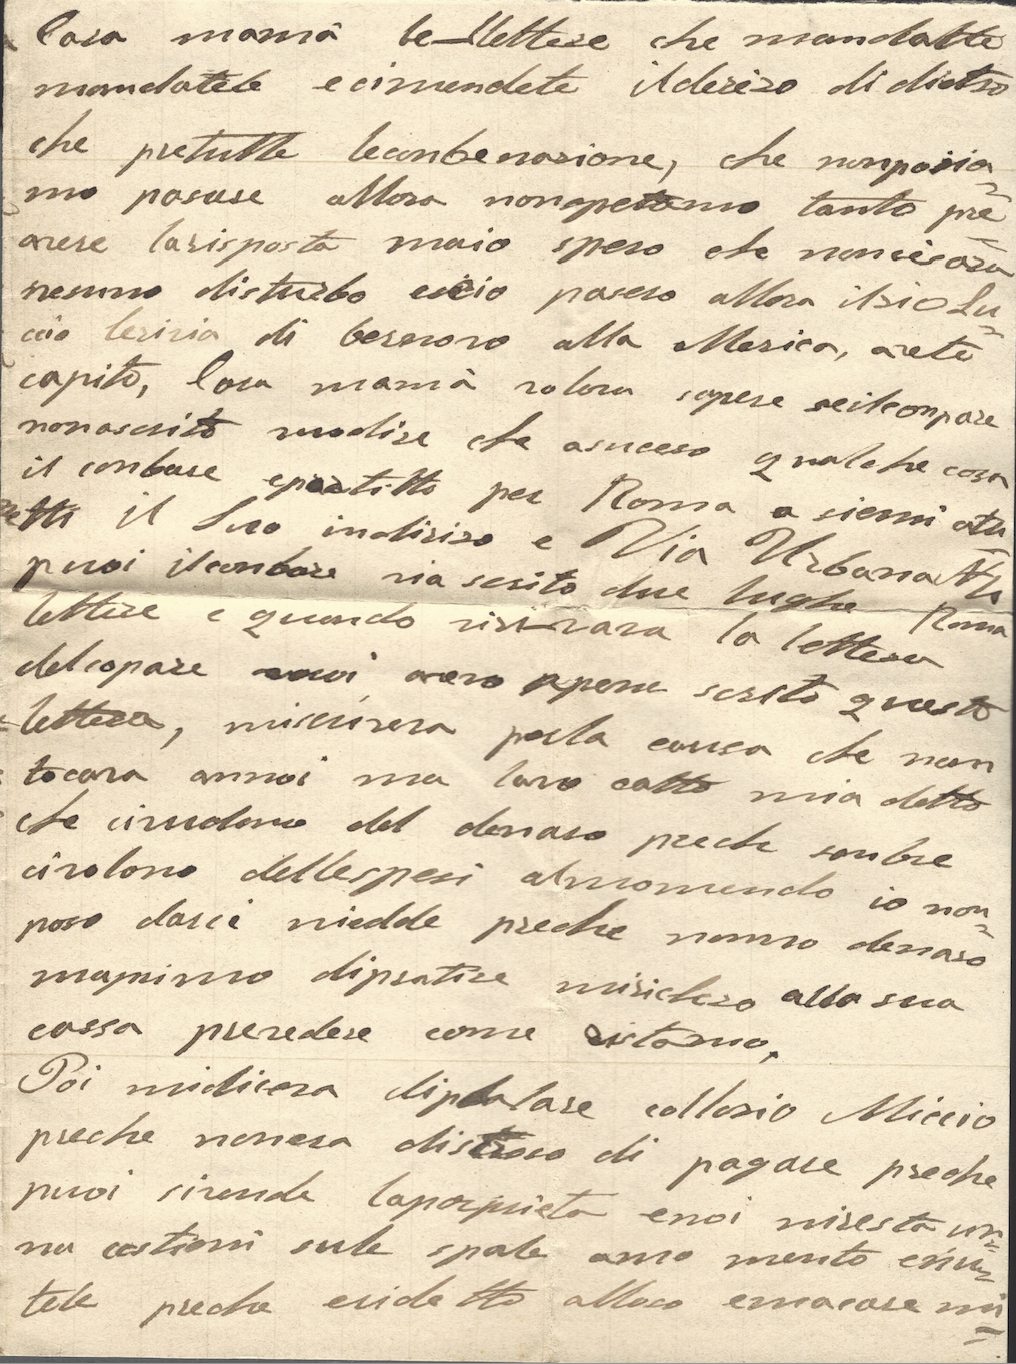 Cara mamà le lettere che mandatte
mandatele e cimendete il derizo di dietro
che pretutte leconbenazione, che nonposia
mo pasare allora nonaspetamo tanto pre
avere larisposta maio spero che noncisara
nesuno disturbo escio pasero allora ilzio Lu
cio leziria di besnoro alla Merica, avete
capito, Cara mamà volera sapere seilconpare
nonascrito vuodire che asuceso qualche cosa
il conbare epartitto per Roma a siemi atu
tti il Suo indirizo e Via Urbana N
puoi ilconbare via scrito due lughe Roma
lettere e quando risivara la lettera
delcopare voi avevo apena scrito questo
lettera, miscrivera perla causa che non
tocara annoi ma loro catto mia detto
che civudono del denaro preche senbre
civolono dellespesi almomendo io non
poso darci niedde preche nonno denaro
manimo dipratire misichero alla sua
cassa prevedere come istamo,
Poi midicera diparlare collozio Miccio
preche nonera distroso di pagare preche
puoi sirende laporpuieta enoi niresta un
na costioni sule spale amo mento enu
tele preche evidetto alloco emacare mi